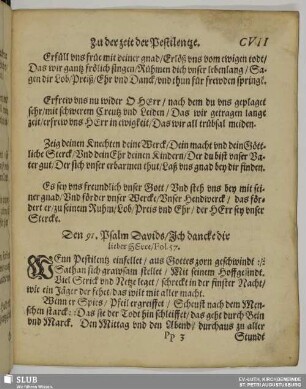 Zu der zeit der Pestilentze. CVII
Erfüll vns früe mit deiner gnad / Erlöß vns vom ewigen todt /
Das wir gantz frölich singen / Rühmen dich vnser lebenlang / Sa-
gen dir Lob / Preiß / Ehr vnd Danck / vnd thun für frewden springē.
Erfrew vns nu wider O HErr / nach dem du vns geplaget
sehr / mit schwerem Creutz vnd Leiden / Das wir getragen lange
zeit / erfrew vns HErr in ewigkeit / Das wir all trübsal meiden.
Zeig deinen Knechten deine Werck / Dein macht vnd dein Gött-
liche Sterck / Vnd dein Ehr deinen Kindern / Der du bist vnser Va-
ter gut / Der sich vnser erbarmen thut / Laß vns gnad bey dir finden.
Es sey vns freundlich vnser Gott / Vnd steh vns bey mit sei-
ner gnad / Vnd förder vnser Wercke / Vnser Hendwerck / das för-
dert er / zu seinem Ruhm / Lob / Preis vnd Ehr / der HErr sey vnser
Stercke.
Den 91. Psalm Davids / Ich dancke dir
lieber HErre / Fol. 57.
WEnn Pestilentz einfellet / aus Gottes zorn geschwind :/:
Sathan sich grawsam stellet / Mit seinem Hoffgesind.
Viel Strick vnd Netze leget / schreckt in der finster Nacht /
wie ein Jäger der fehet / das wilt mit aller macht.
Wenn er Spies / Pfeil ergreiffet / Scheust nach dem Men-
schen starck :/: Das ist der Todt hin schleiffet / das geht durch Bein
vnd Marck. Den Mittag vnd den Abend / durchaus zu aller
Pp 3 Stundt
SLUB
Wir führen Wissen.
EV.-LUTH. KIRCHGEMEINDE
ST. PETRI AUGUSTUSBURG